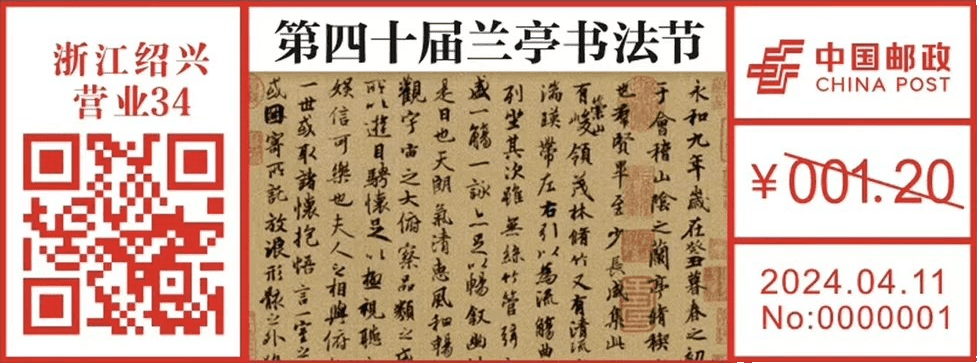 浙江绍兴
营业34
第四十届兰亭书法节
永和九年歲在癸丑暮春之初
于會稽山陰之蘭亭脩稧
也羣賢畢至少長咸集此
有崇山峻領茂林脩竹又有清流
湍暎帶左右引以為流觴曲
列坐其次雖無絲竹管弦
盛一觴一詠亦足以暢叙幽
是日也天朗氣清惠風和暢
觀宇宙之大俯察品類之盛
所以遊目騁懷足以極視聽
娛信可樂也夫人之相與俯
一世或取諸懷抱悟言一室之
或因寄所託放浪形骸之外
中国邮政
CHINA POST
¥001.20
2024.04.11
No:0000001